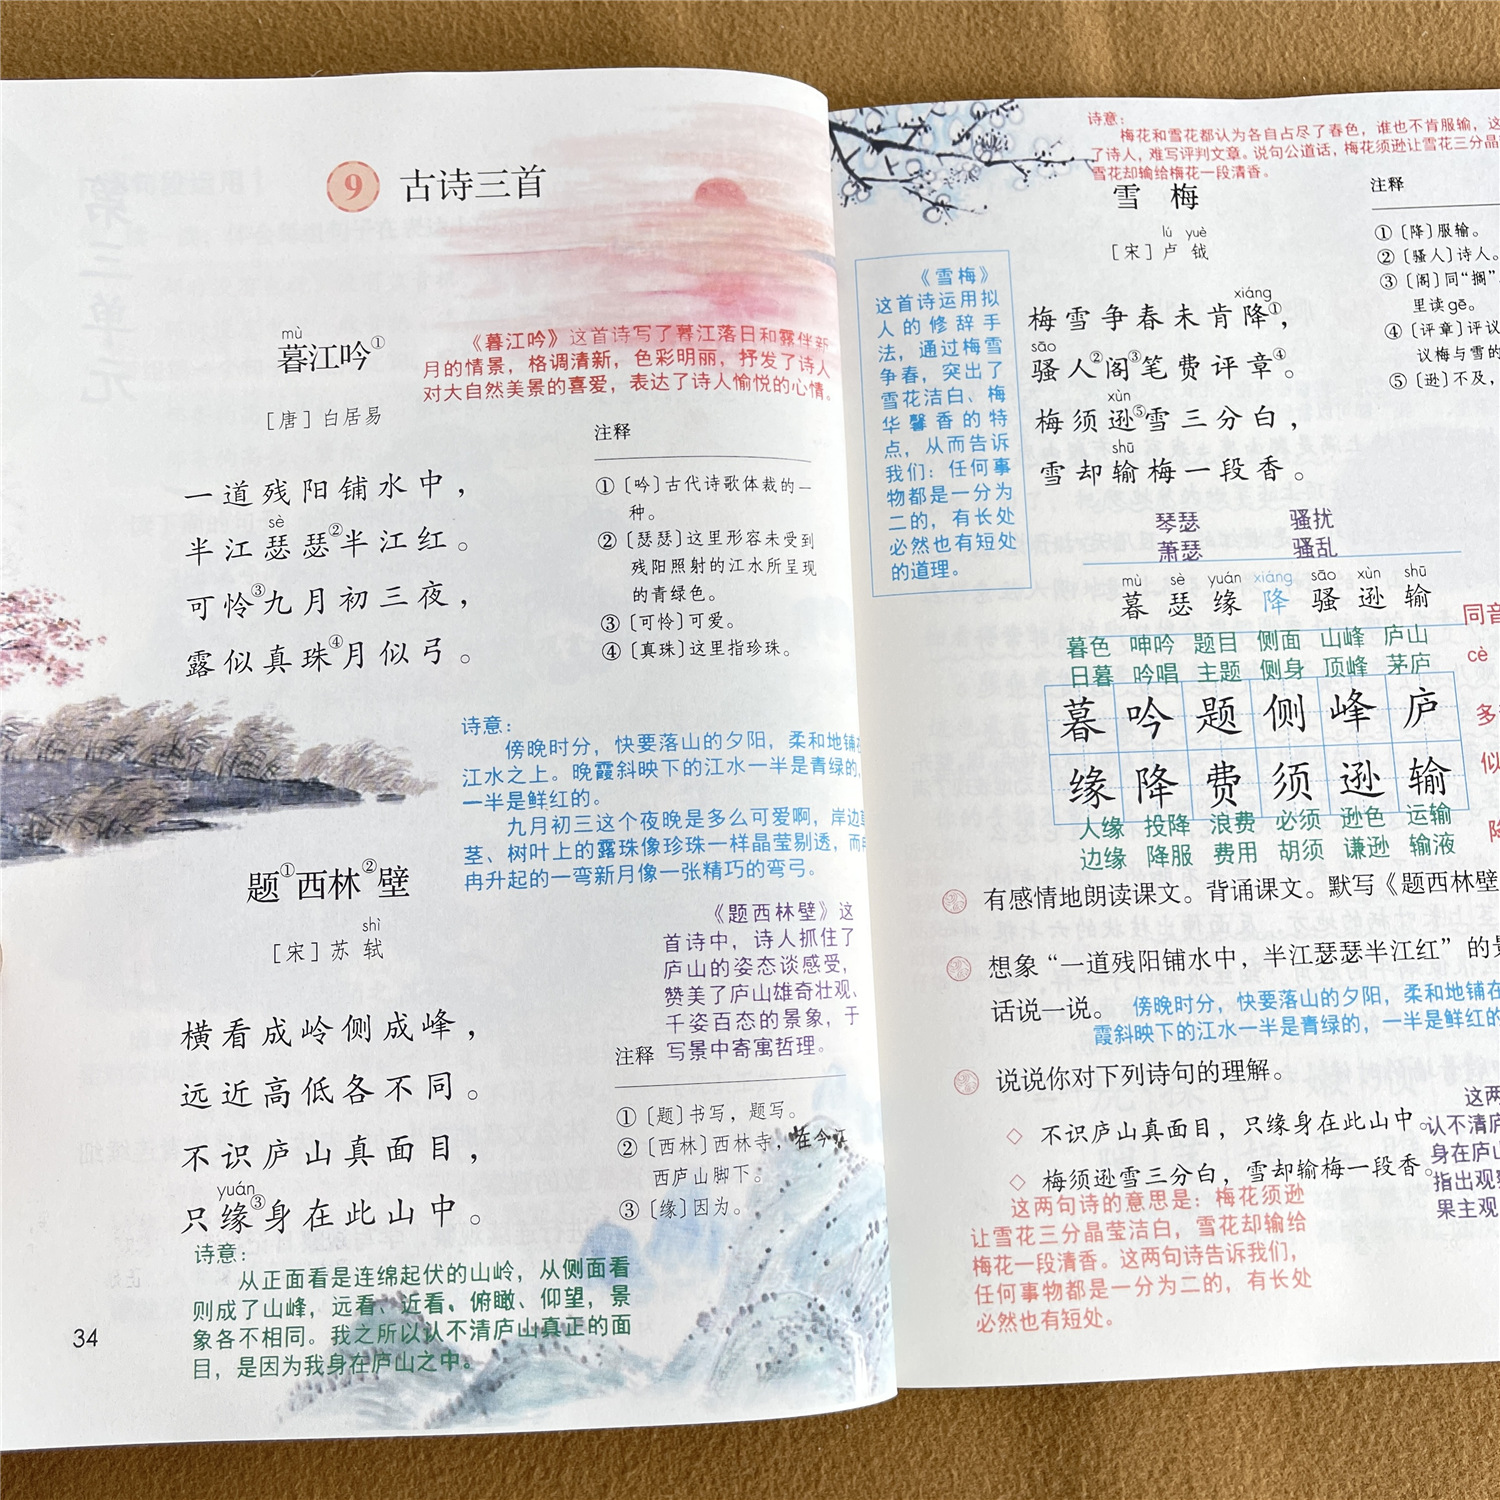 9 古诗三首
mù
暮江吟①
[唐]白居易
《暮江吟》这首诗写了暮江落日和露伴新
月的情景，格调清新，色彩明丽，抒发了诗人
对大自然美景的喜爱，表达了诗人愉悦的心情。
一道残阳铺水中，
sè
半江瑟瑟②半江红。
可怜③九月初三夜，
露似真珠④月似弓。
注释
①〔吟〕古代诗歌体裁的一
种。
②〔瑟瑟〕这里形容未受到
残阳照射的江水所呈现
的青绿色。
③〔可怜〕可爱。
④〔真珠〕这里指珍珠。
诗意：
傍晚时分，快要落山的夕阳，柔和地铺在
江水之上。晚霞斜映下的江水一半是青绿的，
一半是鲜红的。
九月初三这个夜晚是多么可爱啊，岸边草
茎、树叶上的露珠像珍珠一样晶莹剔透，而冉
冉升起的一弯新月像一张精巧的弯弓。
题①西林②壁
shì
[宋]苏轼
横看成岭侧成峰，
远近高低各不同。
不识庐山真面目，
yuán
只缘③身在此山中。
《题西林壁》这
首诗中，诗人抓住了
庐山的姿态谈感受，
赞美了庐山雄奇壮观、
千姿百态的景象，于
写景中寄寓哲理。
注释
①〔题〕书写，题写。
②〔西林〕西林寺，在今江
西庐山脚下。
③〔缘〕因为。
诗意：
从正面看是连绵起伏的山岭，从侧面看
则成了山峰，远看、近看，俯瞰、仰望，景
象各不相同。我之所以认不清庐山真正的面
目，是因为我身在庐山之中。
34
诗意：
梅花和雪花都认为各自占尽了春色，谁也不肯服输，这
了诗人，难写评判文章。说句公道话，梅花须逊让雪花三分晶
雪花却输给梅花一段清香。
雪 梅
lú yuè
[宋]卢 钺
《雪梅》
这首诗运用拟
人的修辞手
法，通过梅雪
争春，突出了
雪花洁白、梅
华馨香的特
点，从而告诉
我们：任何事
物都是一分为
二的，有长处
必然也有短处
的道理。
xiáng
梅雪争春未肯降①，
sāo
骚人②阁③笔费评章④。
xùn
梅须逊⑤雪三分白，
shū
雪却输梅一段香。
注释
①〔降〕服输。
②〔骚人〕诗人。
③〔阁〕同“搁”
里读gē。
④〔评章〕评议
议梅与雪的
⑤〔逊〕不及，
琴瑟 骚扰
萧瑟 骚乱
mù sè yuán xiáng sāo xùn shū
暮 瑟 缘 降 骚 逊 输
暮色 呻吟 题目 侧面 山峰 庐山
日暮 吟唱 主题 侧身 顶峰 茅庐
暮 吟 题 侧 峰 庐
缘 降 费 须 逊 输
人缘 投降 浪费 必须 逊色 运输
边缘 降服 费用 胡须 谦逊 输液
同音
cè
多
似
降
有感情地朗读课文。背诵课文。默写《题西林壁
想象“一道残阳铺水中，半江瑟瑟半江红”的景
话说一说。
傍晚时分，快要落山的夕阳，柔和地铺在
霞斜映下的江水一半是青绿的，一半是鲜红的
说说你对下列诗句的理解。
◇ 不识庐山真面目，只缘身在此山中。
◇ 梅须逊雪三分白，雪却输梅一段香。
这两句诗的意思是：梅花须逊
让雪花三分晶莹洁白，雪花却输给
梅花一段清香。这两句诗告诉我们，
任何事物都是一分为二的，有长处
必然也有短处。
这两
认不清庐
身在庐山
指出观察
果主观